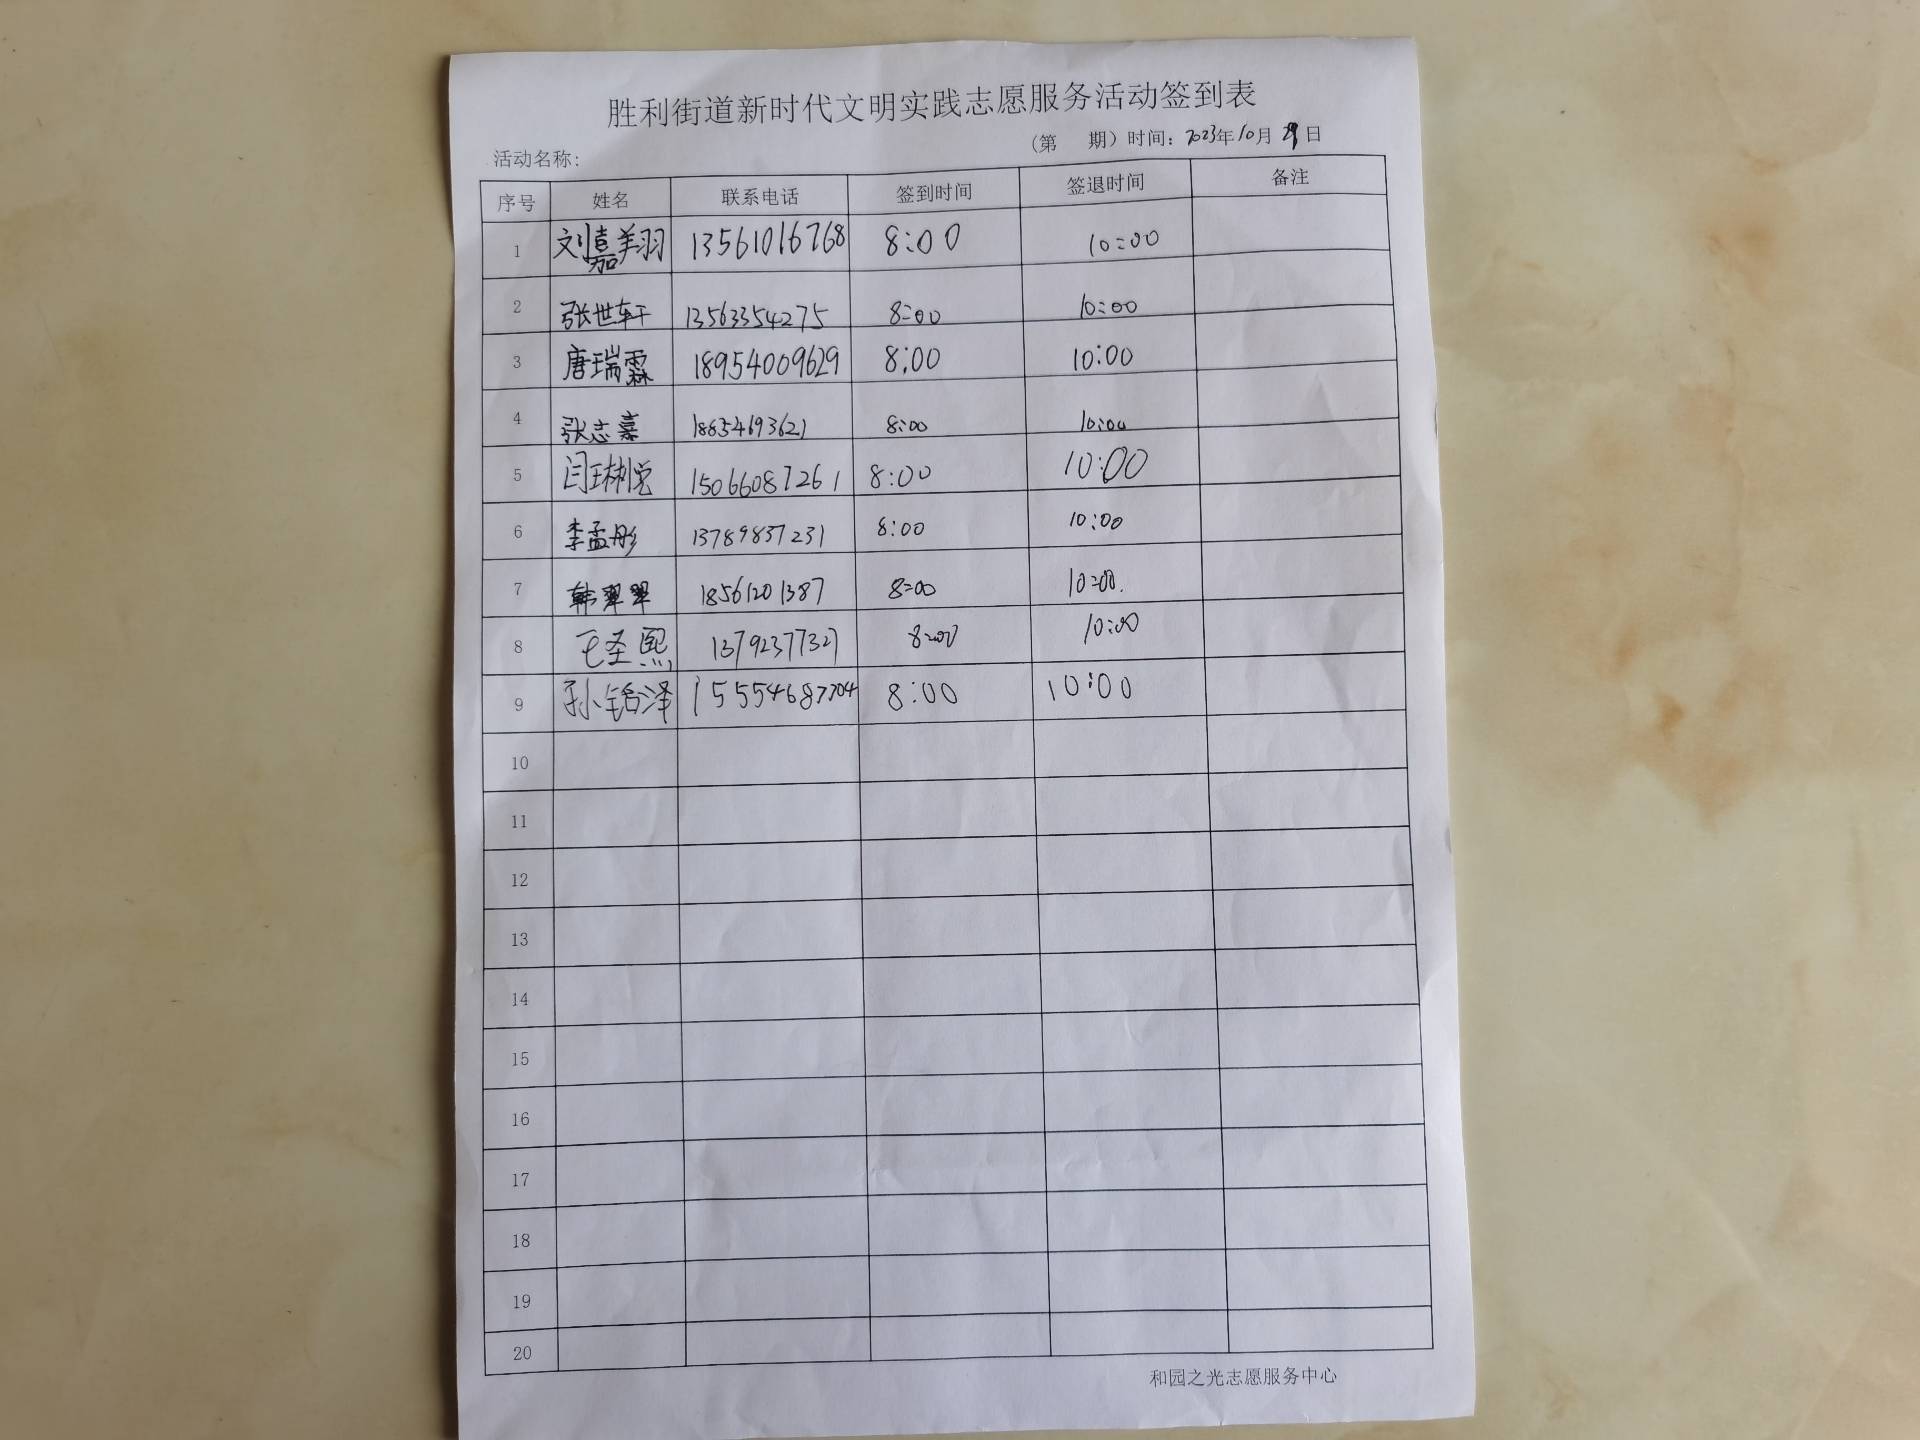 胜利街道新时代文明实践志愿服务活动签到表
(第 期) 时间: 2023年10月29日
活动名称:
序号 姓名 联系电话 签到时间 签退时间 备注
1 刘嘉翔 13561016768 8:00 10:00
2 张世轩 13563354275 8:00 10:00
3 唐瑞霖 18954009629 8:00 10:00
4 张志嘉 18854693621 8:00 10:00
5 15066087261 8:00 10:00
6 李孟彤 13789837231 8:00 10:00
7 韩翠翠 18561201387 8:00 10:00.
8 王圣熙 13792377327 8:00 10:00
9 孙铭泽 15554687704 8:00 10:00
10
11
12
13
14
15
16
17
18
19
20
和园之光志愿服务中心